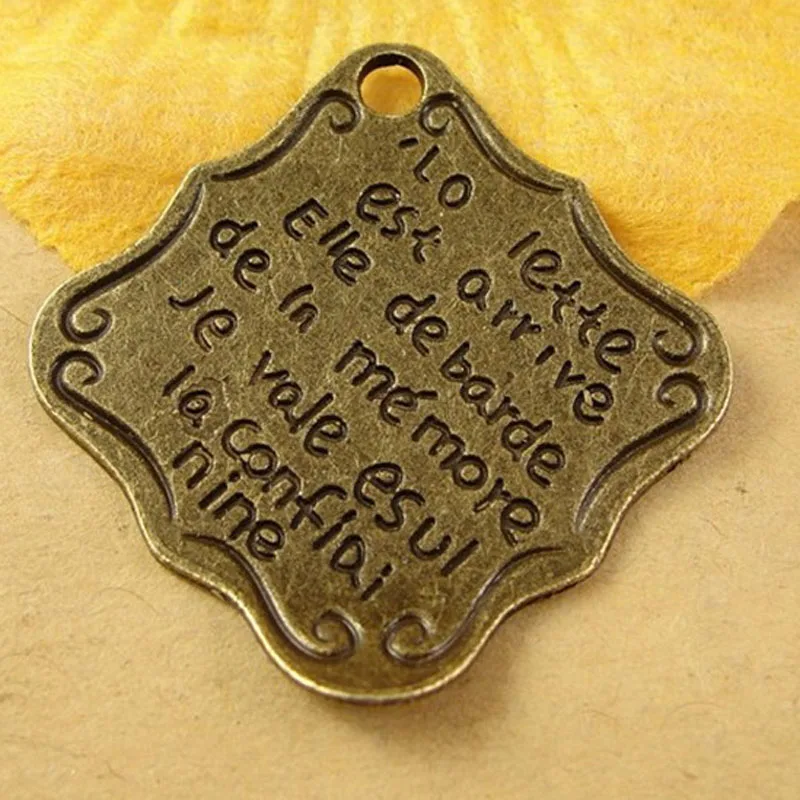 'LO lette
est arrive
Elle debarde
de ln mémore
Je vale esul
la confiai
nine